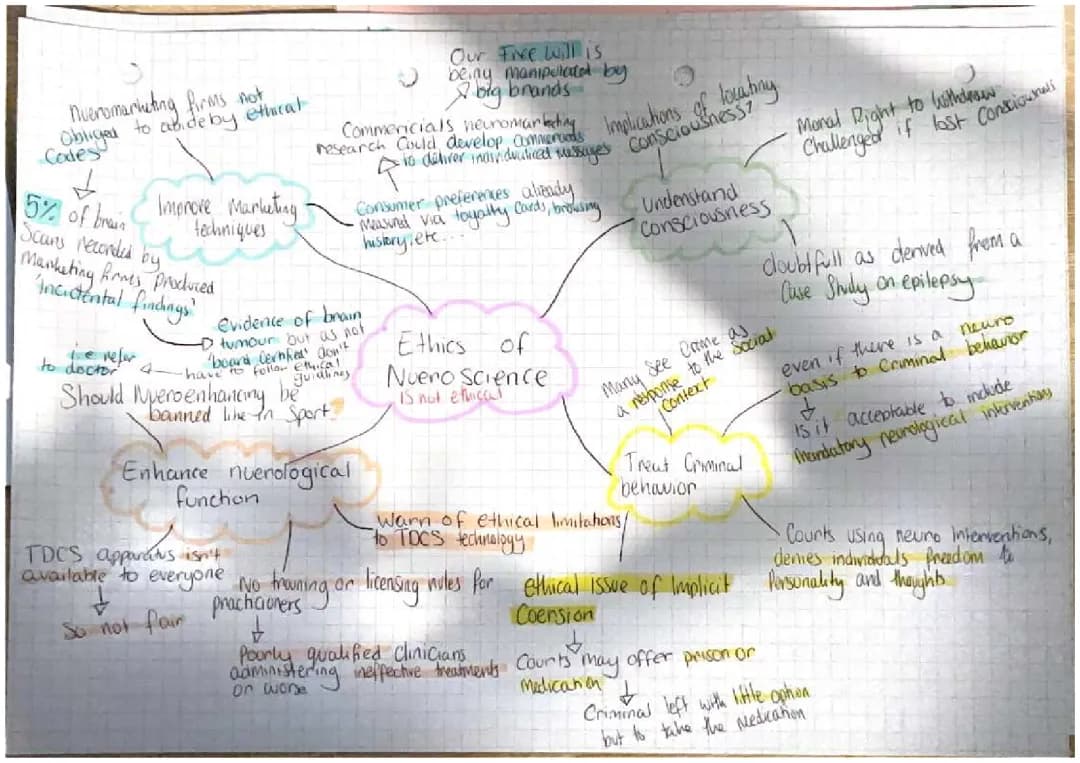 Our Free will is
being manipulated by
big brands
Nueromarketing firms not
obliged to abide by ethical
Codes
Commericials neuromarketing
research could develop commercials
to deliver individualised messages
Implications of locating
consciousness?
Moral Right to withdraw
Challenged if lost Consciousness
5% of brain
Scans recorded by
Marketing firms produced
'incidental findings'
Improve Marketing
techniques
Consumer preferences already
Measured via loyalty cards, browsing
history, etc...
Understand
consciousness
doubtfull as derived from a
Case Study on epilepsy
evidence of brain
tumour but as not
'board certified' don't
have to follow ethical
guidlines
i.e refer
to doctor
Ethics of
Nueroscience
is not ethical
Many see Crime as
a response to the social
context
even if there is a neuro
basis to Criminal behavior
Is it acceptable to include
Mandatory neurological interventions
Should Nueroenhancing be
banned like in Sport?
Enhance nuerological
function
Treat Criminal
behavior
Warn of ethical limitations
to TDCS technology
TDCS apparatus isn't
available to everyone
So not fair
No training or licensing rules for
practicioners
Poorly qualified Clinicians
administering ineffective treatments
or worse
ethical issue of Implicit
Coersion
Courts may offer prison or
Medication
Criminal left with little option
but to take the Medication
Courts using neuro Interventions,
denies individuals freedom to
Personality and thoughts